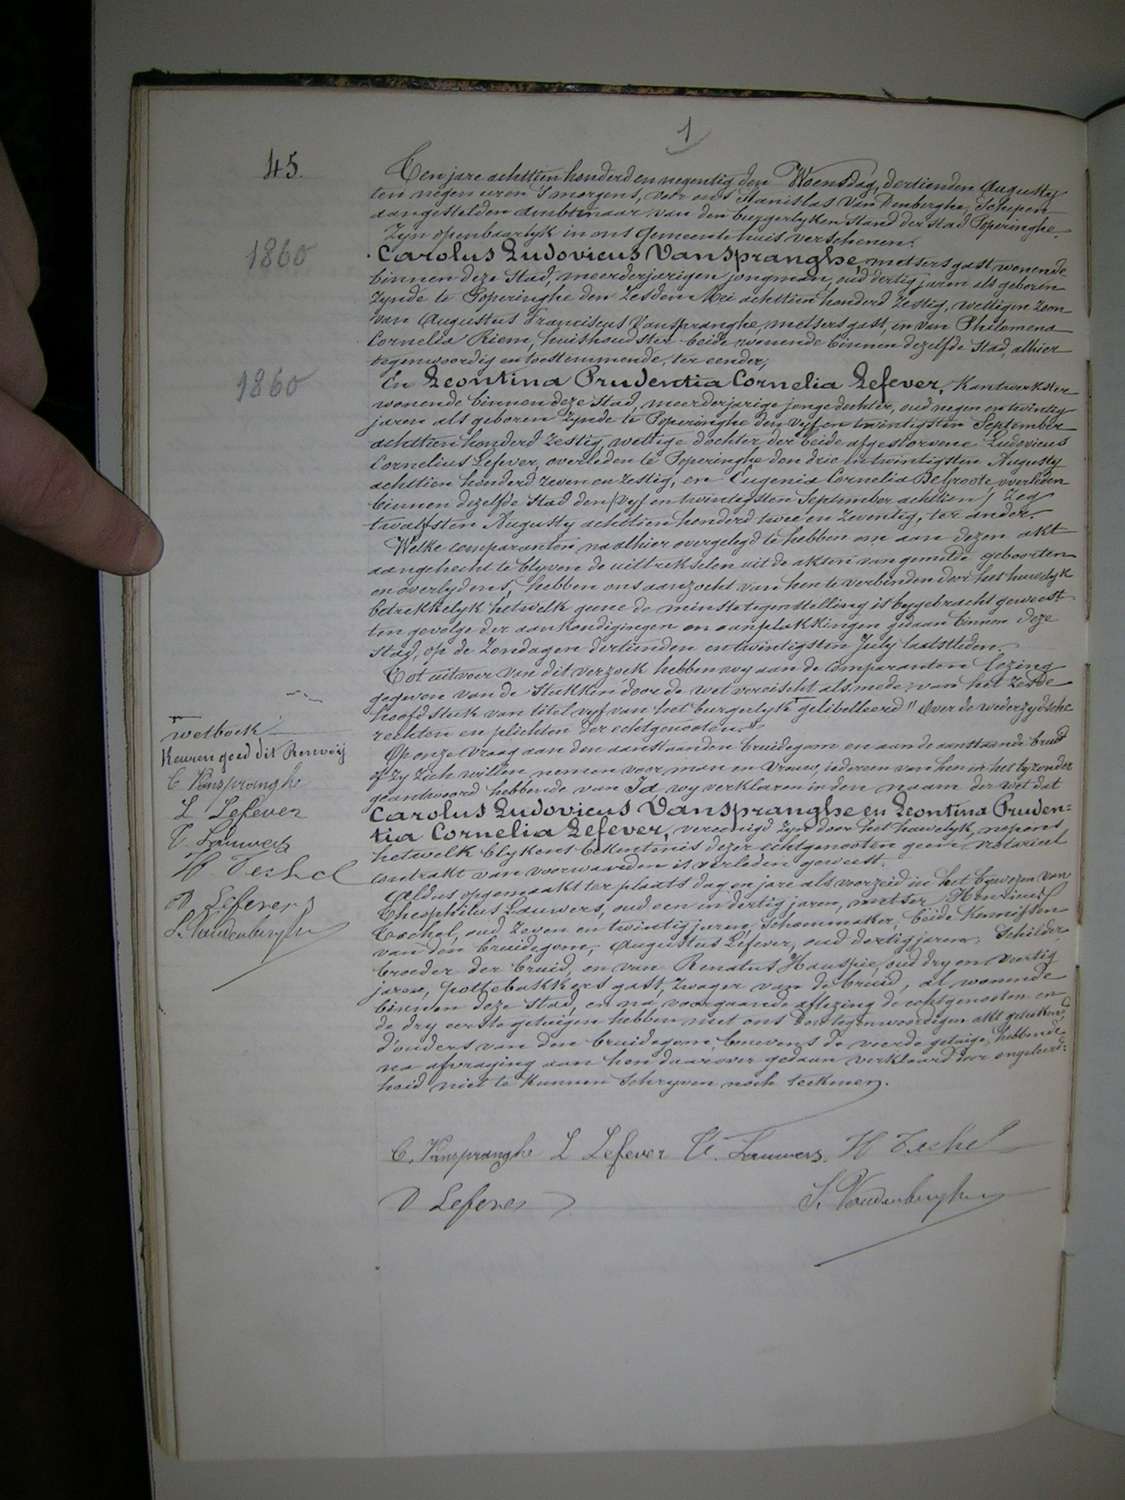 1
45.
Ten jare achttien honderd en negentig den Woensdag, dertienden Augusty
ten negen uren s'morgens, voor ons Stanislas Van Denberghe, Schepen
aangestelden ambtenaar van den burgerlyken Stand der Stad Poperinghe.
Zyn openbaarlyk in ons Gemeentehuis verschenen:
1860
Carolus Ludovicus Vanspranghe, metsersgast, wonende
binnen deze Stad, meerderjarigen jongman, oud dertig jaren als geboren
zynde te Poperinghe den Zesden Mei achttien honderd Zestig, wettigen Zoon
van Augustus Franciscus Vanspranghe, metsersgast, en van Philomena
Cornelia Riem, huishoudster beide wonende binnen dezelfde Stad, alhier
tegenwoordig en toestemmende, ter eender;
1860
En Leontina Prudentia Cornelia Lefever, Kantwerkster
wonende binnen deze Stad, meerderjarige jongedochter, oud negen en twintig
jaren als geboren zynde te Poperinghe den vyf en twintigsten September
achttien honderd Zestig, wettige dochter der beide afgestorvene Ludovicus
Cornelius Lefever, overleden te Poperinghe den drie en twintigsten Augusty
achttien honderd zeven en Zestig, en Eugenia Cornelia DeGroote, overleden
binnen dezelfde Stad den vyf en twintigsten September achttien
twaalfsten Augusty achttien honderd twee en Zeventig, ter ander.
Welke comparanten, na alhier overgelegd te hebben om aan dezen akt
aangehecht te blyven de uittrekselen uit de akten van gemelde geboorten
en overlydens, hebben ons aanzocht van hen te verbinden door het huwelyk
betrekkelyk hetwelk geene de minste tegenstelling is bygebracht geweest
ten gevolge der aankondigingen en aanplakkingen gedaan binnen deze
Stad, op de Zondagen dertienden en twintigsten July laatstleden.
Tot uitvoer van dit verzoek hebben wy aan de Comparanten lezing
gegeven van de Stukken door de wet vereischt alsmede van het Zesde
hoofdstuk van titel vyf van het burgerlyk gelibelleerd "Over de wederzydsche
rechten en plichten der echtgenooten."
wetboek
Keuren goed dit Renvoij
C. Vanspranghe
L Lefever
T. Lauwers
H Techel
D Lefever
S. Vandenberghe
Op onze vraag aan den aanstaanden bruidegom en aan de aanstaande bruid
of zy zich willen nemen voor man en vrouw, iedereen van hen in het byzonder
geantwoord hebbende van Ja, wy verklaren in den naam der wet dat
Carolus Ludovicus Vanspranghe en Leontina Pruden=
tia Cornelia Lefever, vereenigd zyn door het huwelyk, nopens
hetwelk blykens bekentenis dezer echtgenooten geen notarieel
contrakt van voorwaarden is verleden geweest.
Aldus opgemaakt ter plaats dag en jare als voorzeid in het bywezen van
Theophilus Lauwers, oud een en dertig jaren, metser, Henricus
Techel, oud Zeven en twintig jaren, Schoenmaker, beide Kennissen
van den bruidegom, Augustus Lefever, oud dertig jaren, Schilder
broeder der bruid, en van Renatus Hauspie, oud dry en veertig
jaren, pottebakkersgast, Zwager van de bruid, al wonende
binnen deze Stad, en na voorgaande aflezing de echtgenooten en
de dry eerste getuigen hebben met ons den tegenwoordigen akt geteekend
d'ouders van den bruidegom, benevens de vierde getuige, hebbende
na afvraging aan hen daarover gedaan verklaard door ongeleerd=
heid niet te kunnen Schryven noch teekenen.
C. Vanspranghe L Lefever T. Lauwers. H Techel
D Lefever S. Vandenberghe